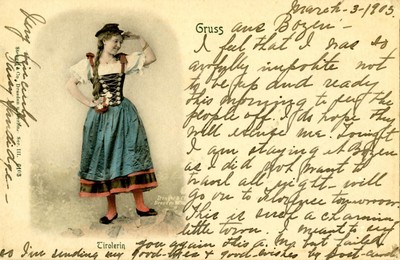 March-3-1903.
Gruss aus Bozen:-
I feel that I was so
awfully impolite not
to be up and ready
this morning to see the
people off. I do hope they
will excuse me. Tonight
I am staying at Bozen
as I did not want to
travel all night - will
go on to Florence tomorrow.
This is such a charming
little town. I meant to see
you again this a.m. but failed
so I'm sending my good-byes & good wishes by post-card
Very sincerely
Tirolerin